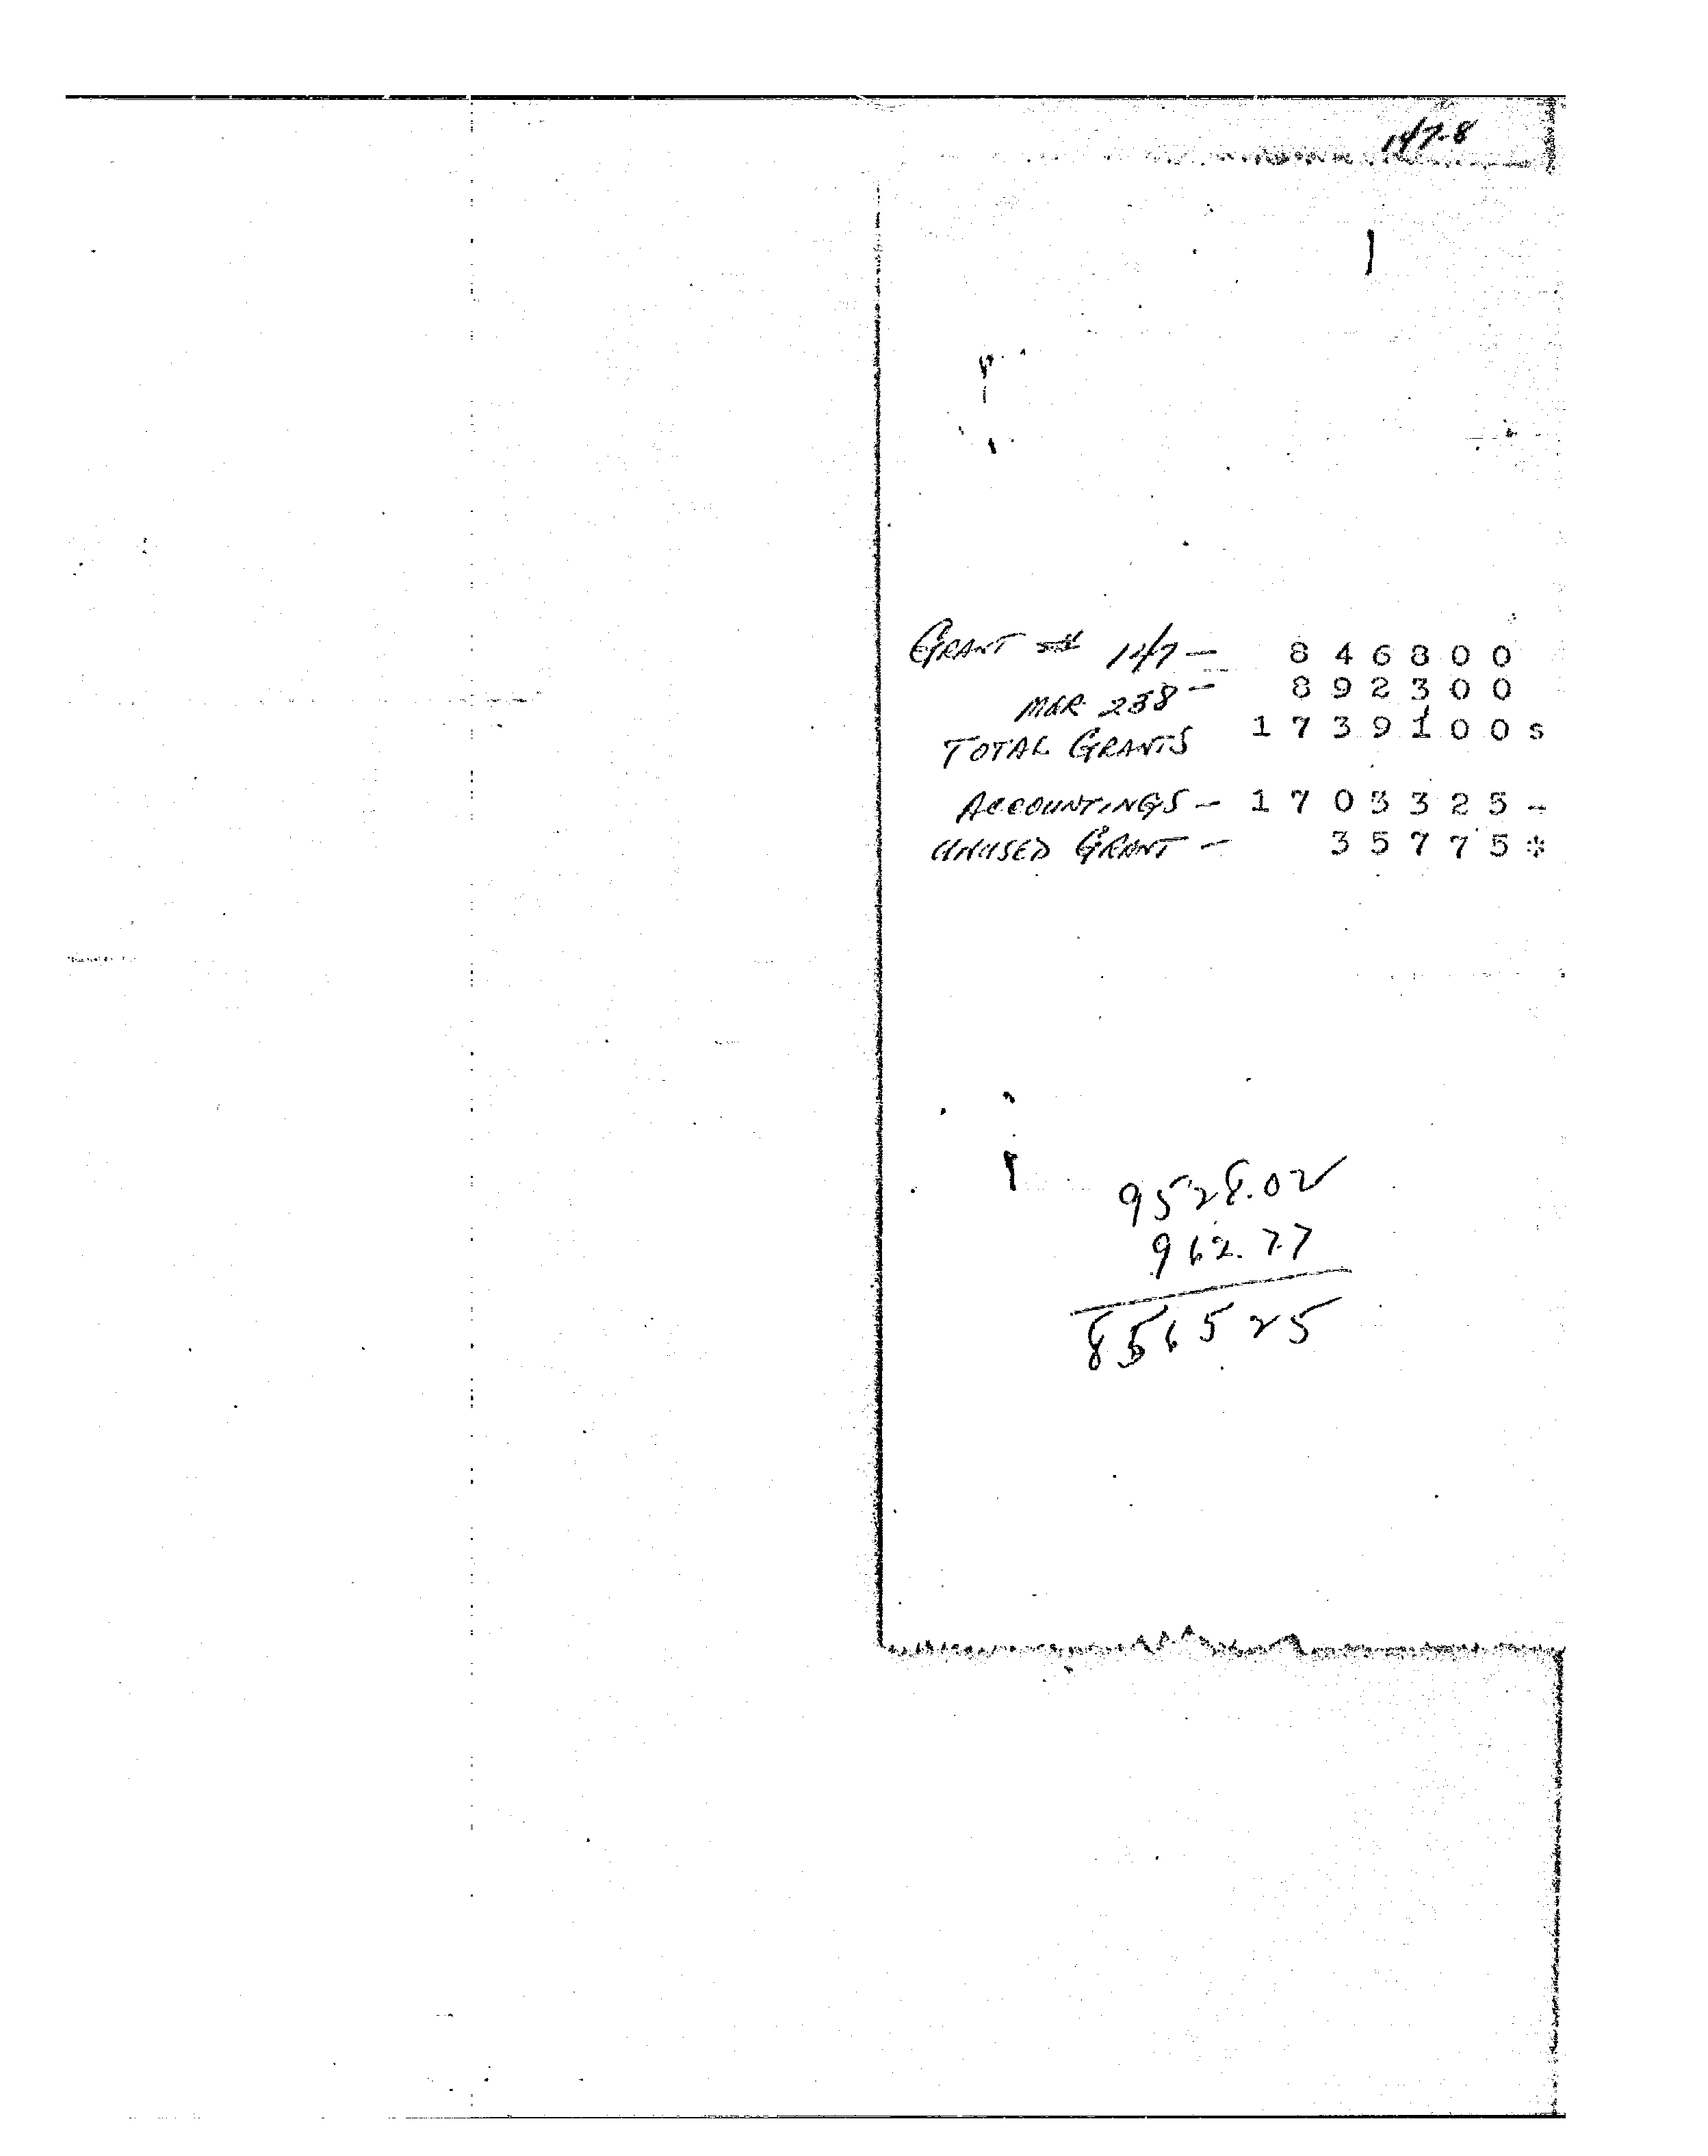 147-8
GRANT # 147 - 8 4 6 8 0 0
M&R 238 - 8 9 2 3 0 0
TOTAL GRANTS 1 7 3 9 1 0 0 s
ACCOUNTINGS - 1 7 0 3 3 2 5 -
UNUSED GRANT - 3 5 7 7 5 *
9528.02
962.77
856525